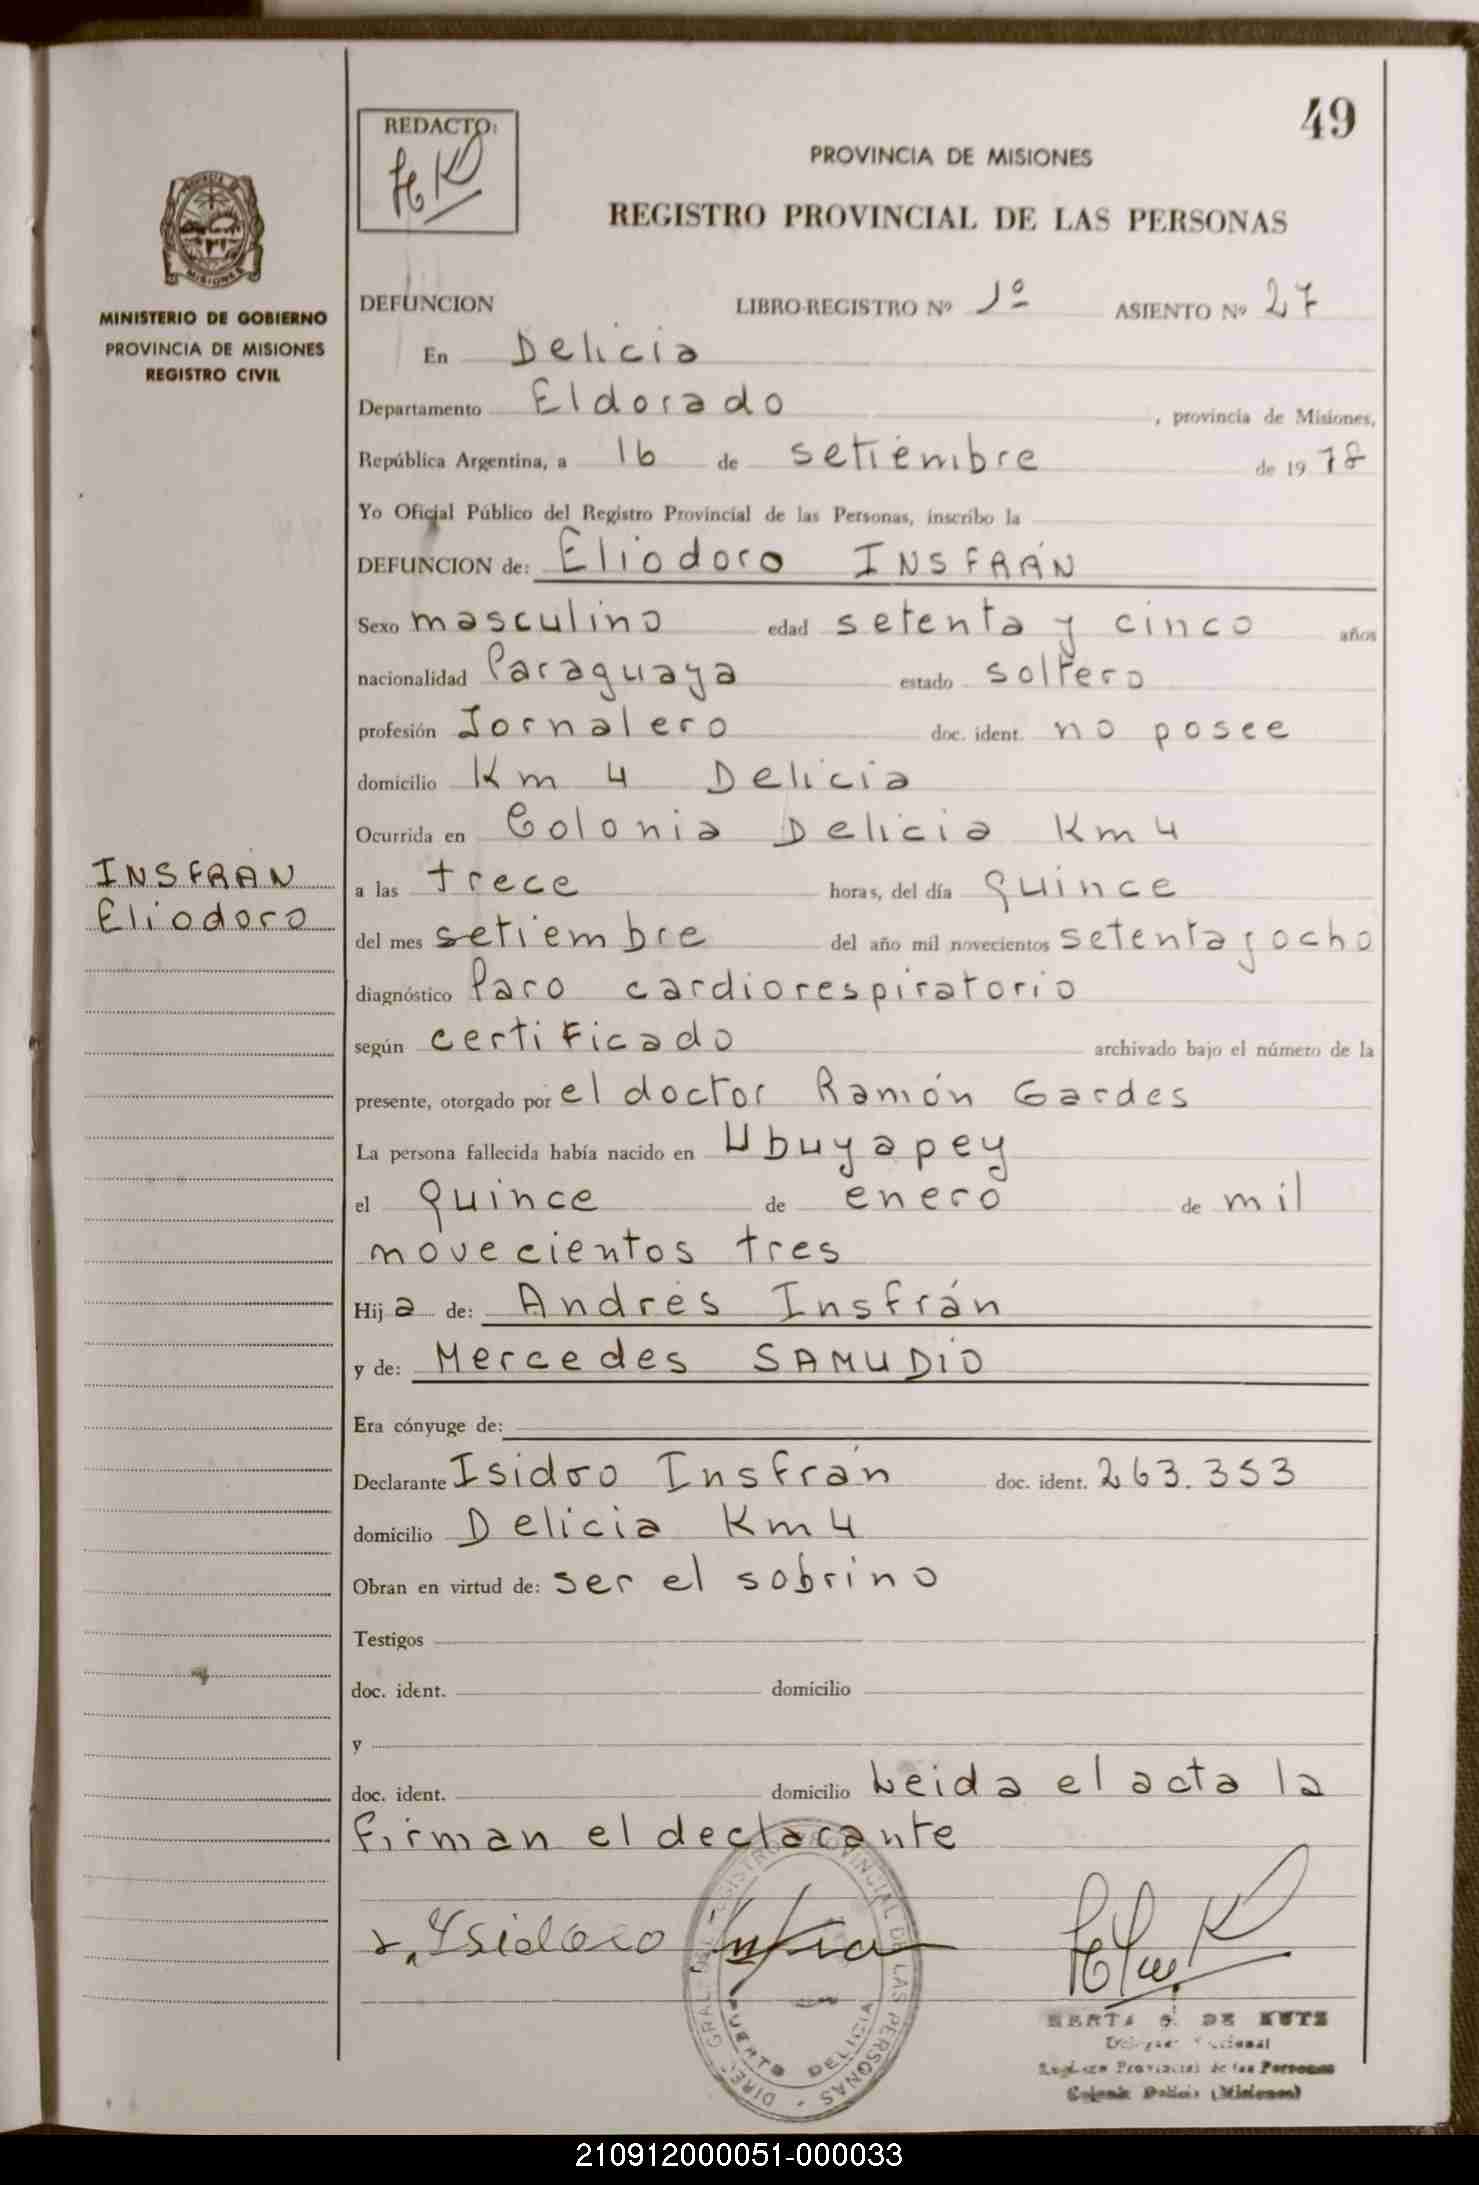 49
REDACTO:
PROVINCIA DE MISIONES
REGISTRO PROVINCIAL DE LAS PERSONAS
MINISTERIO DE GOBIERNO
PROVINCIA DE MISIONES
REGISTRO CIVIL
DEFUNCION LIBRO-REGISTRO Nº 1º ASIENTO Nº 27
En Delicia
Departamento Eldorado, provincia de Misiones,
República Argentina, a 16 de setiembre de 1978
Yo Oficial Público del Registro Provincial de las Personas, inscribo la
DEFUNCION de: Eliodoro INSFRÁN
Sexo masculino edad setenta y cinco años
nacionalidad Paraguaya estado soltero
profesión Jornalero doc. ident. no posee
domicilio Km 4 Delicia
Ocurrida en Colonia Delicia Km 4
INSFRÁN
Eliodoro
a las trece horas, del día quince
del mes setiembre del año mil novecientos setenta y ocho
diagnóstico Paro cardiorespiratorio
según certificado archivado bajo el número de la
presente, otorgado por el doctor Ramón Gardes
La persona fallecida había nacido en Ubuyapey
el quince de enero de mil
novecientos tres
Hija de: Andrés Insfrán
y de: Mercedes SAMUDIO
Era cónyuge de:
Declarante Isidro Insfrán doc. ident. 263.353
domicilio Delicia Km 4
Obran en virtud de: ser el sobrino
Testigos
doc. ident. domicilio
y
doc. ident. domicilio Leida el acta la
firman el declarante
DIREC. GRAL. DEL REGISTRO PROVINCIAL DE LAS PERSONAS
PUERTO DELICIA
DE KUTZ
Registro Provincial de las Personas
Colonia Delicia (Misiones)
210912000051-000033